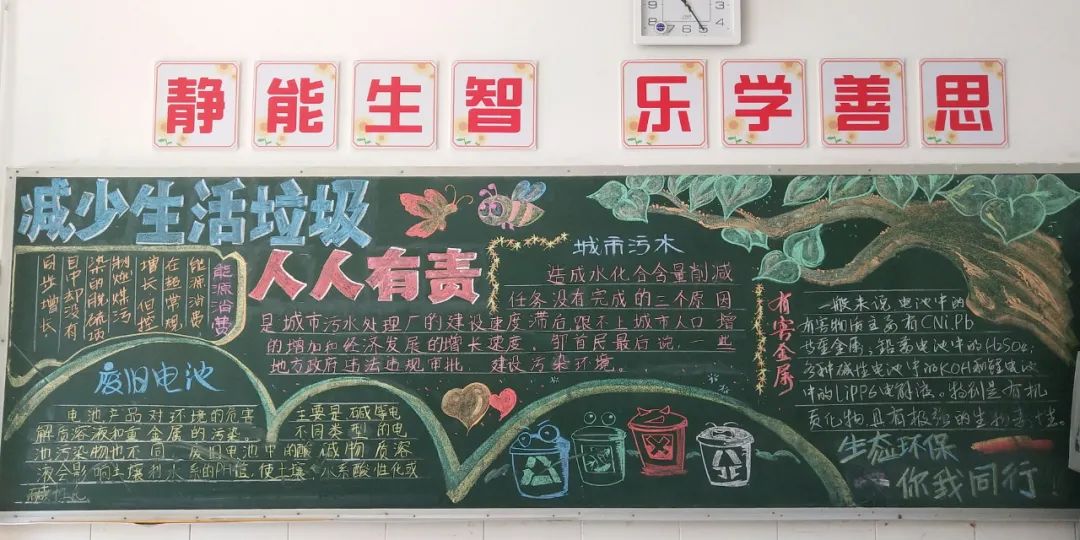 静能生智 乐学善思
减少生活垃圾
人人有责
能源消费
能源消费
在超常规
增长 但控
制燃煤污
染的脱硫项
目中却没有
同步增长
城市污水
造成水化合含量削减
任务没有完成的三个原因
是城市污水处理厂的建设速度滞后,跟不上城市人口增
的增加和经济发展的增长速度。邹首民最后说,一些
地方政府违法违规审批, 建设污染环境。
废旧电池
电池产品对环境的危害
解质溶液和重金属的污染。
池污染物也不同、废旧电池中的酸
液会影响土壤和水系的PH值,使土壤、水系酸性化或
主要是碱解电
不同类型的电
碱物质溶
有害金属
一般来说,电池中的
有害物质主要有CNi,Pb
等重金属;铅蓄电池中的H₂SO₄,
各种碱性电池中的KOH和锂电池
中的LiPP6电解液。特别是有机
贡化物,具有极强的生物毒性。
生态环保
你我同行!